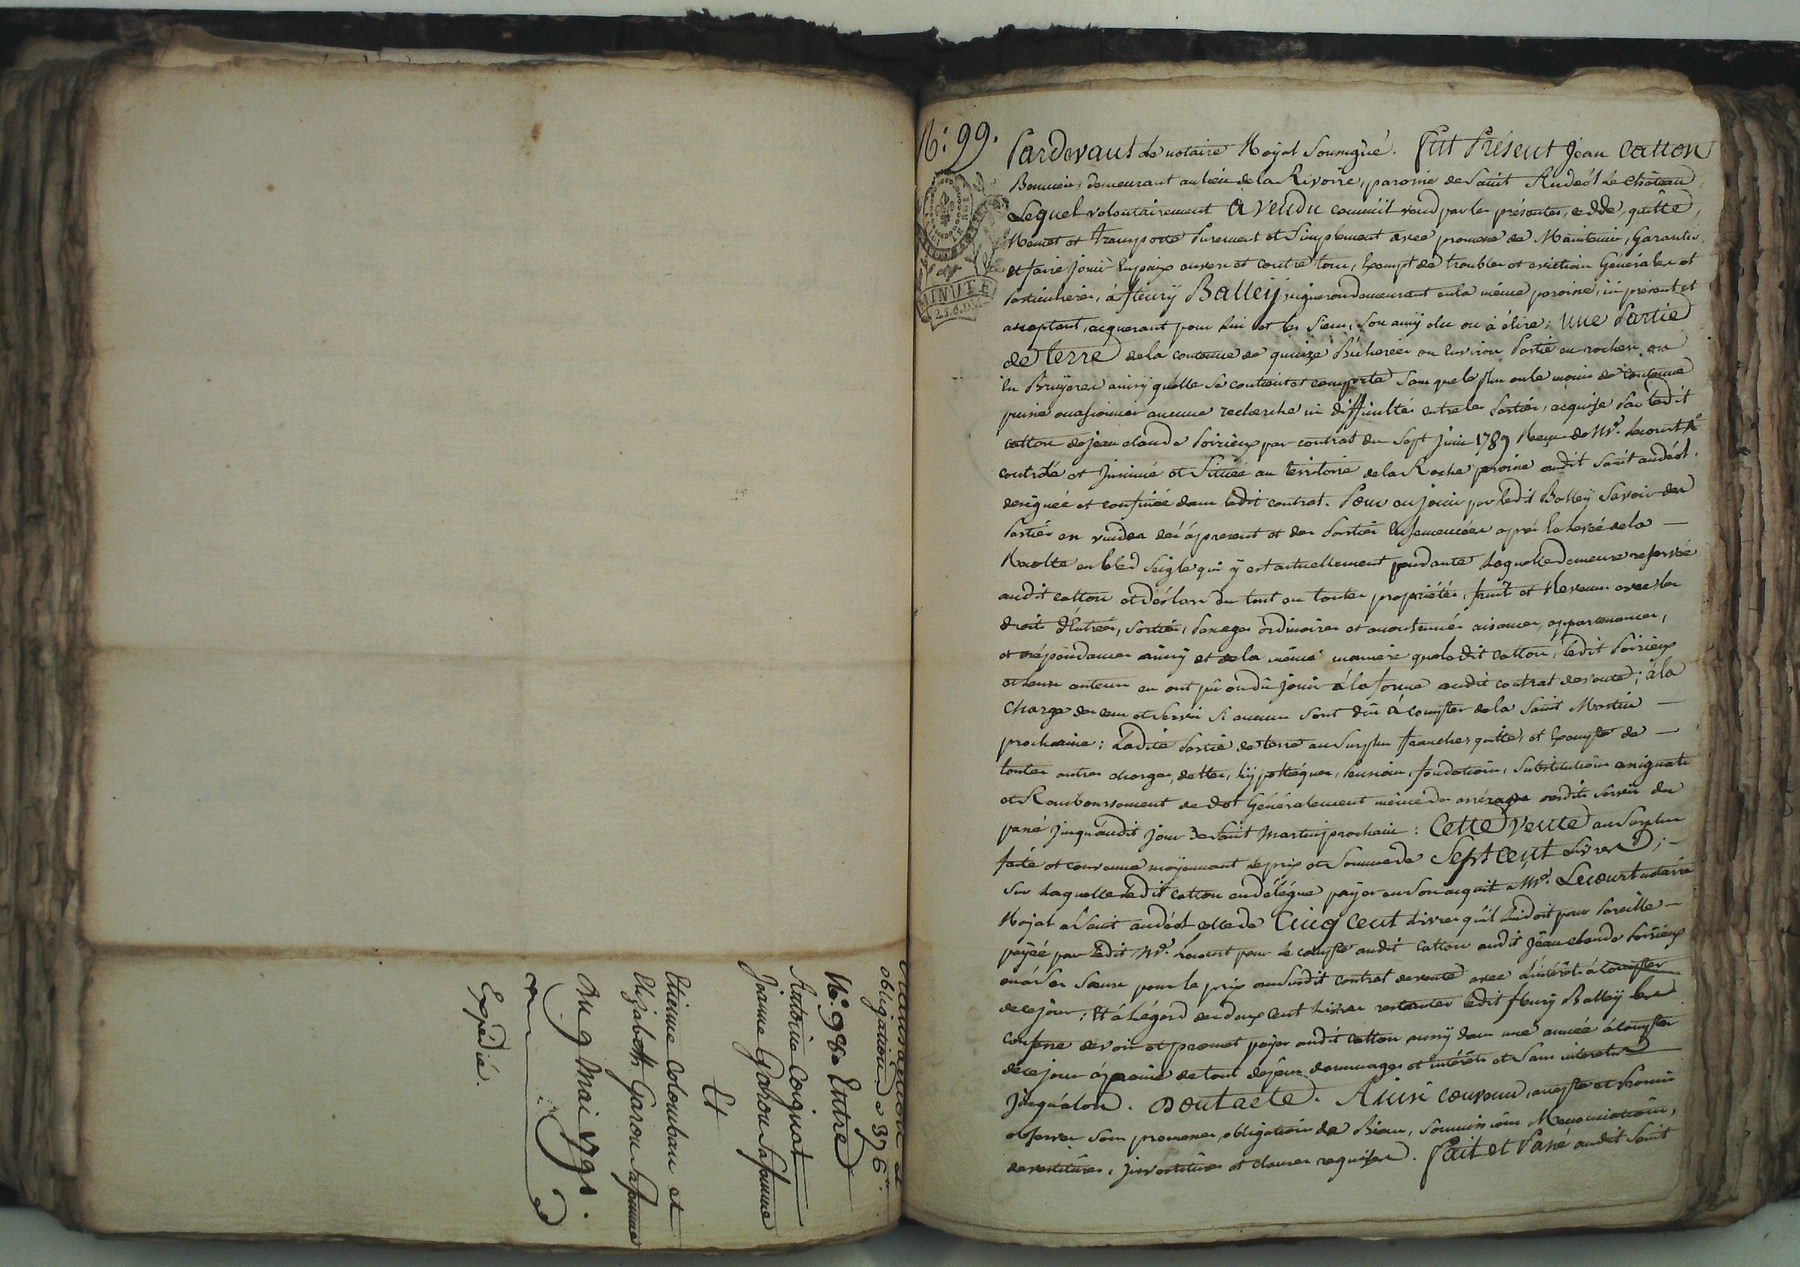 transaction et
obligation de 376ᵗᵗ.
N.º 98. Entre
Antoine Coignat
Jeanne Gahou sa femme
Et
Etienne Colombon et
Elizabeth Garou sa femme
Du 9 Mai 1791.
Expédié.
N.º 99.
Pardevant le notaire Royal Soussigné. fut Présent Jean Catton
demeurant au lieu de la Rivoire, paroisse de Saint Andéol le Château,
Lequel volontairement a vendu comm'il vend par les présentes, cedde, quitte,
Remet et transporte Purement et Simplement avec promesse de Maintenir, Garantir,
et faire jouir En paix envers et contre tous, Exempt de troubles et eviction Générales et
Particulieres, à fleury Balley vigneron demeurant en la même paroisse, ici présent et
acceptant, acquerant pour Lui et les Siens, Son amy élu ou à élire; une Partie
de terre de la contenue de quinze Bicherées ou Environ Partie en rocher ou
En Bruyeres ainsy qu'elle Se contient et comporte Sans que le plus ou le moins de contenue
puisse occasionner aucune recherche ni difficulté entre les Parties, acquise Par ledit
Catton de jean claude Poirieux par contrat du Sept juin 1789 Reçu de Mᵉ. Lecourt
controlé et Insinué et Située au territoire de la Roche paroisse dudit Saint andéol,
designée et confinée dans ledit contrat. Pour en jouir par ledit Balley Savoir des
Parties en vuides dès àpresent et des Parties Ensemencées après la levée de la
Recolte en bled Seigle qui y est actuellement pendante Laquelle demeure reservée
audit catton et déslors du tout en toutes propriétés, fruits et Revenus avec les
droits d'Entrées, Sorties, Passages ordinaires et accoutumés aisances, appartenances,
et dépendances ainsy et de la même maniere que ledit catton, ledit Poirieux
et leurs auteurs en ont pû ou dû jouir à la forme dudit contrat de vente; à la
charge des cens et Servis Si aucuns Sont dûs à compter de la Saint Martin
prochaine: Ladite Partie de terre au Surplus franche, quitte et Exempte de
toutes autres charges, dettes, hypothèques, Pension, fondation, Substitution
et Remboursement de dot Généralement même des arrérages desdits Servis du
passé jusqu'audit jour de Saint Martin prochain: Cette Vente au Surplus
faite et convenue moyennant le prix et Somme de Sept Cent Livres;
Sur Laquelle ledit Catton en délégue payer en Son acquit a Mᵉ. Lecourt notaire
Royal à Saint andéol celle de Cinq Cent Livres qu'il Lui doit pour Pareille
payée par ledit Mᵉ. Lecourt pour le compte dudit Catton audit Jean claude Poirieux
ou à Sa Sœur pour le prix du Susdit contrat de vente avec L'intérêt à compter
de ce jour; Et à l'égard des deux cent Livres restantes ledit fleury Balley les
confesse devoir et promet payer audit Catton ainsy dans une année à compter
de ce jour à peine de tous dépens, dommages et intérêts et Sans interets
jusqu'alors. Dont acte. Ainsi convenu, accepté et Promis
observer Sous promesses, obligation de Biens, Soumissions Renonciations,
devestitures, investitures et clauses requises. Fait et Passé audit Saint